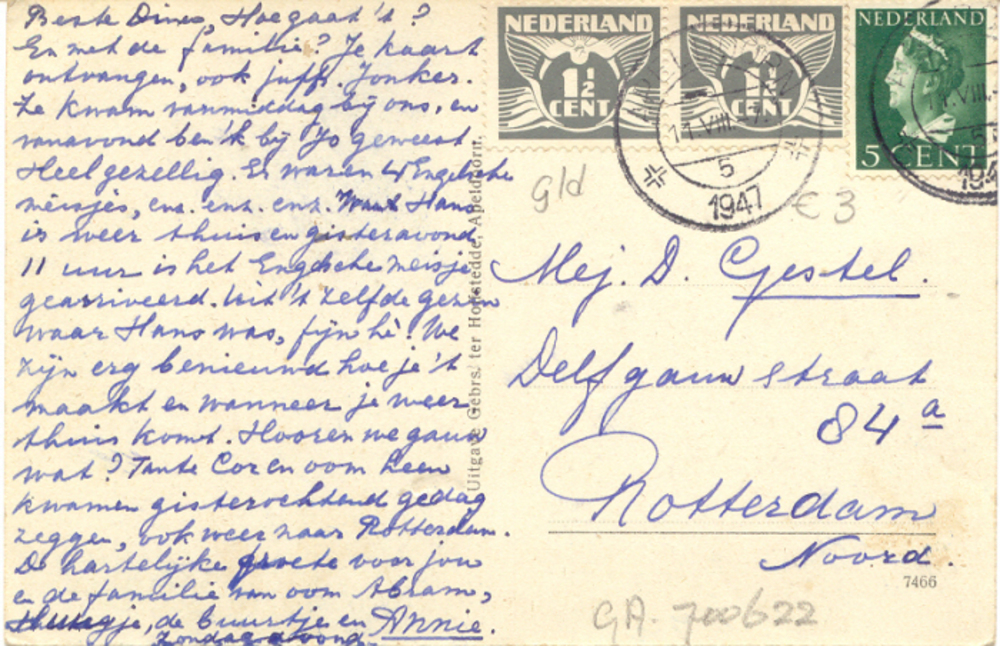 Beste Dines, Hoe gaat 't?
En met de familie? Je kaart
ontvangen, ook juffr. Jonker.
Ze kwam vanmiddag bij ons, en
vanavond ben ik bij Jo geweest.
Heel gezellig. Er waren Engelsche
meisjes, enz. enz. enz. Want Hans
is weer thuis en gisteravond
11 uur is het Engelsche meisje
gearriveerd. Uit 't zelfde gezin
waar Hans was, fijn hè! We
zijn erg benieuwd hoe je 't
maakt en wanneer je weer
thuis komt. Hooren we gauw
wat? Tante Cor en oom Keen
kwamen gisterochtend gedag
zeggen, ook weer naar Rotterdam.
De hartelijke groete voor jou
en de familie van oom Abram,
de buurtjes en Annie.
Zondagavond
Uitgave Gebrs. ter Hofstedde, Apeldoorn.
NEDERLAND
1½
CENT
NEDERLAND
1½
CENT
NEDERLAND
5 CENT
APELDOORN
11.VIII.47
5
1947
Gld
€ 3
Mej. D. Gestel.
Delfgauwstraat
84 a
Rotterdam
Noord.
7466
GA. 700622